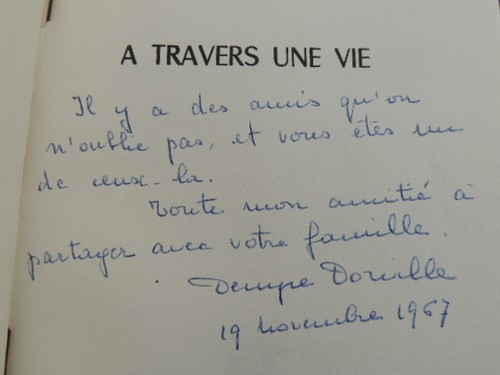 A TRAVERS UNE VIE
Il y a des amis qu'on
n'oublie pas, et vous êtes un
de ceux-la.
Toute mon amitié à
partager avec votre famille.
Dorville
19 novembre 1967